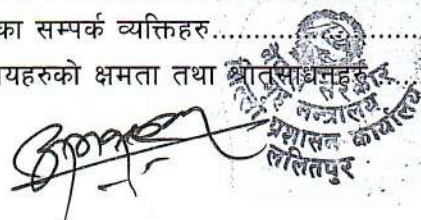 का सम्पर्क व्यक्तिहरु..................
यहरुको क्षमता तथा श्रोतसाधनहरु.....
नेपाल सरकार
गृह मन्त्रालय
जिल्ला प्रशासन कार्यालय
ललितपुर